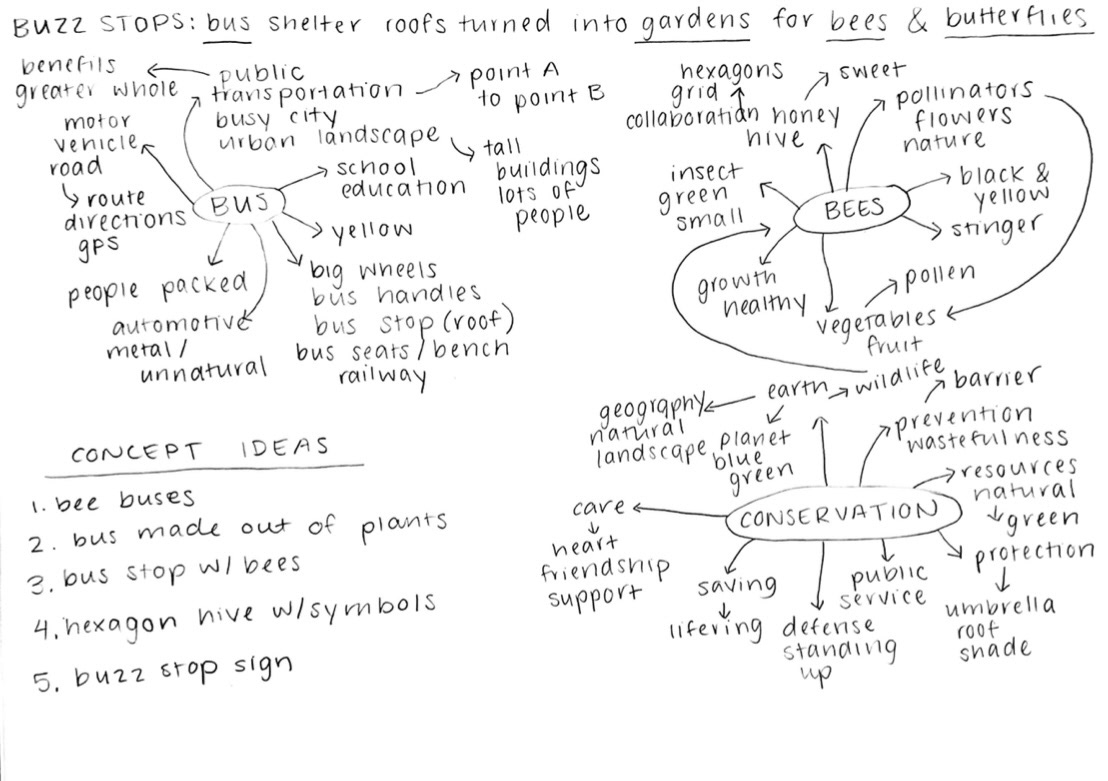 BUZZ STOPS: bus shelter roofs turned into gardens for bees & butterflies
benefits
greater whole
public
transportation
busy city
urban landscape
point A
to point B
tall
buildings
lots of
people
motor
vehicle
road
route
directions
gps
school
education
BUS
yellow
people packed
automotive
metal/
unnatural
big wheels
bus handles
bus stop (roof)
bus seats/bench
railway
hexagons
grid
collaboration
sweet
honey
hive
pollinators
flowers
nature
insect
green
small
black &
yellow
BEES
stinger
growth
healthy
pollen
vegetables
fruit
earth
wildlife
geography
natural
landscape
planet
blue
green
barrier
prevention
wastefulness
resources
natural
green
CONSERVATION
care
heart
friendship
support
saving
lifering
defense
standing
up
public
service
protection
umbrella
roof
shade
CONCEPT IDEAS
1. bee buses
2. bus made out of plants
3. bus stop w/ bees
4. hexagon hive w/symbols
5. buzz stop sign